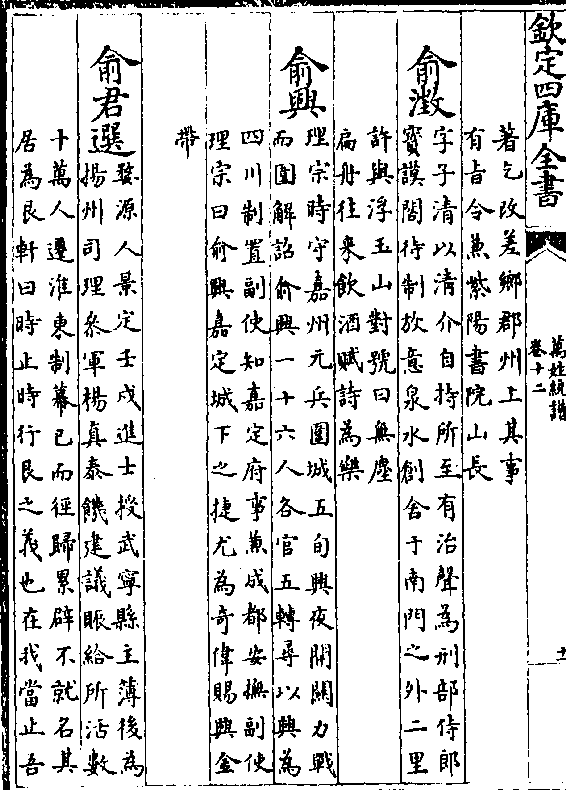 欽定四庫全書
萬姓統譜
卷十二
十
著乞改差鄉郡州上其事
有旨令兼紫陽書院山長
俞澂
字子清以清介自持所至有治聲為刑部侍郎
寳謨閣待制放意泉水創舍于南門之外二里
許與浮玉山對號曰無塵
扁舟往来飲酒賦詩為樂
俞興
理宗時守嘉州元兵圍城五旬興夜開關力戰
而圍解詔俞興一十六人各官五轉尋以興為
四川制置副使知嘉定府事兼成都安撫副使
理宗曰俞興嘉定城下之捷尤為奇偉賜興金
帶
俞君選
婺源人景定壬戌進士授武寧縣主薄後為
揚州司理叅軍楊真泰饑建議賑給所活數
十萬人遷淮東制幕已而徑歸累辟不就名其
居為艮軒曰時止時行艮之義也在我當止吾